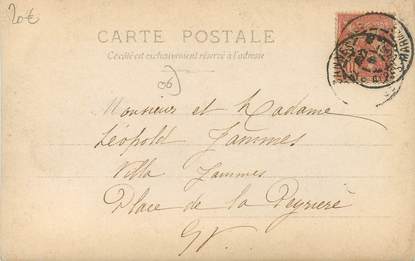 20€
CARTE POSTALE
Ce côté est exclusivement réservé à l'adresse
(06)
Monsieur et Madame
Léopold Jammes
Villa Jammes
Place de la Peyrière